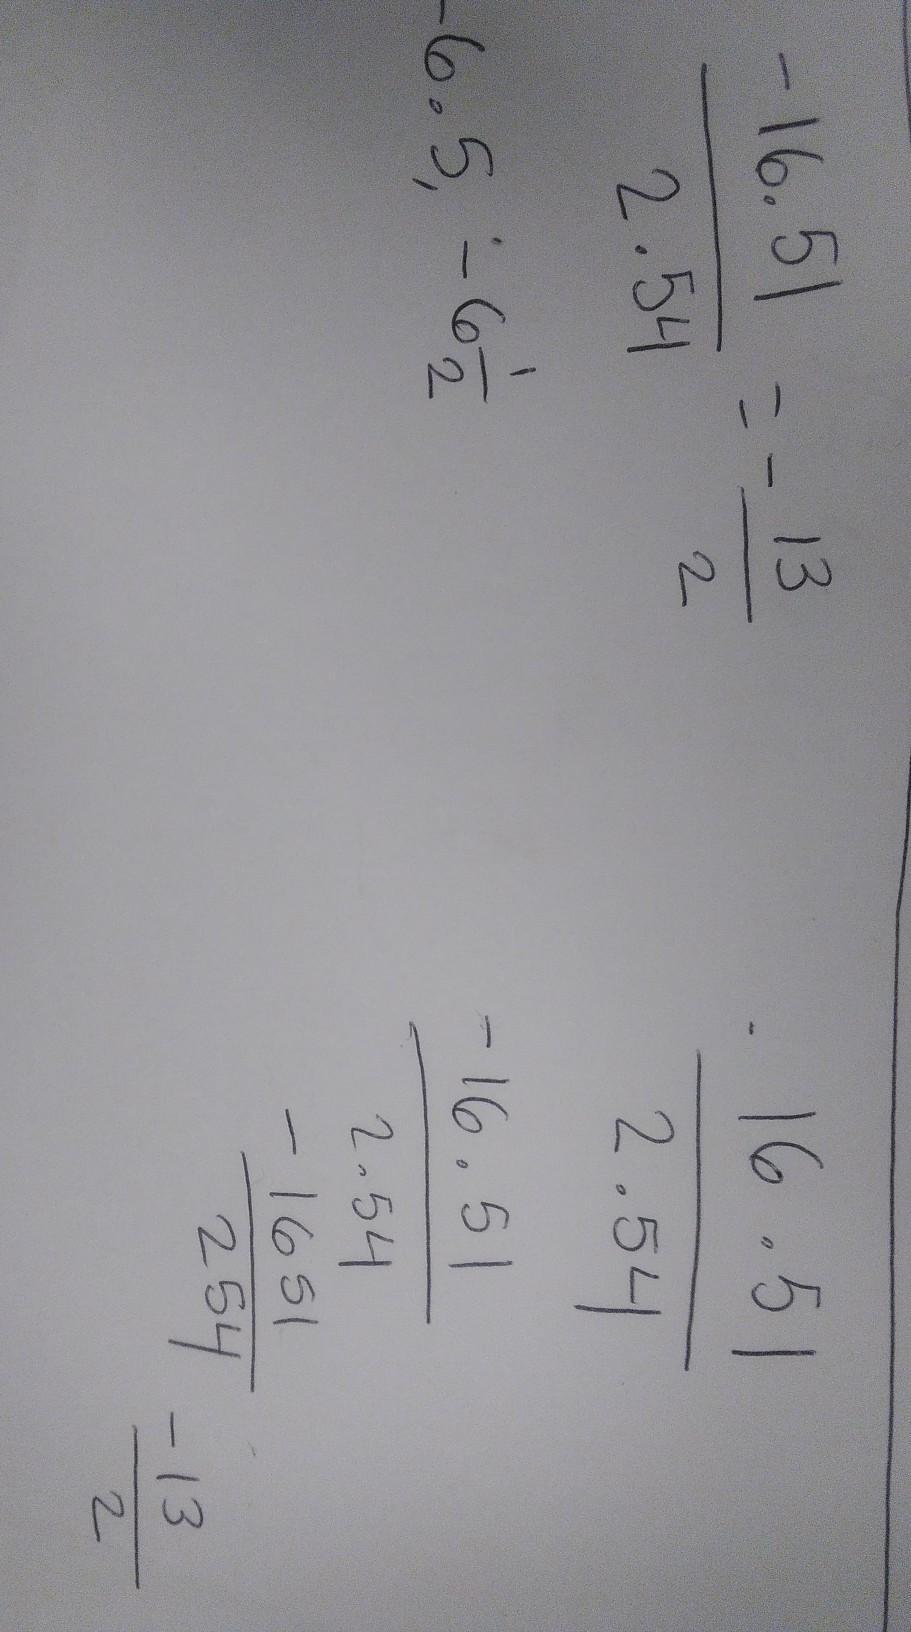 -16.51 / 2.54 = - 13 / 2
-6.5, -6 1/2
- 16.51 / 2.54
-16.51 / 2.54
-1651 / 254
-13 / 2